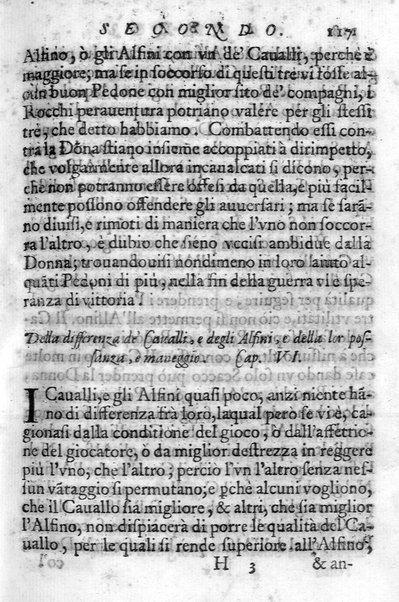 SECONDO. 117.
Alfino, ò gli Alfini con vn de' Caualli, perche è
maggiore; ma se in soccorso di questi tre vi fosse al-
cun buon Pedone con miglior sito de' compagni, i
Rocchi perauentura potriano valere per gli stessi
tre, che detto habbiamo. Combattendo essi con-
tra la Dõna stiano insieme accoppiati à dirimpetto,
che volgarmente allora incanalati si dicono, per-
chè non potranno essere offesi da quella, e più facil-
mente possono offendere gli auuersari; ma se sarã-
no diuisi, e rimoti di maniera che l'vno non soccor-
ra l'altro, è dubio che sieno vccisi ambidue dalla
Donna; trouandouisi nondimeno in loro aiuto al-
quãti Pedoni di più, nella fin della guerra vi è spe-
ranza di vittoria.
Della differenza de' Caualli, e degli Alfini, e della lor pos-
sanza, e maneggio. Cap. VI.
I Caualli, e gli Alfini quasi poco, anzi niente hã-
no di differenza fra loro, laqual pero se vi è, ca-
gionasi dalla conditione del gioco, ò dall'affettio-
ne del giocatore, ò da miglior destrezza in reggere
più l'vno, che l'altro; percio l'vn l'altro senza nes-
sun vãtaggio si permutano; e pche alcuni vogliono,
che il Cauallo sia migliore, & altri, che sia miglior
l'Alfino, non dispiacerà di porre le qualità del Ca-
uallo, per le quali si rende superiore all'Alfino,
H 3 & an-